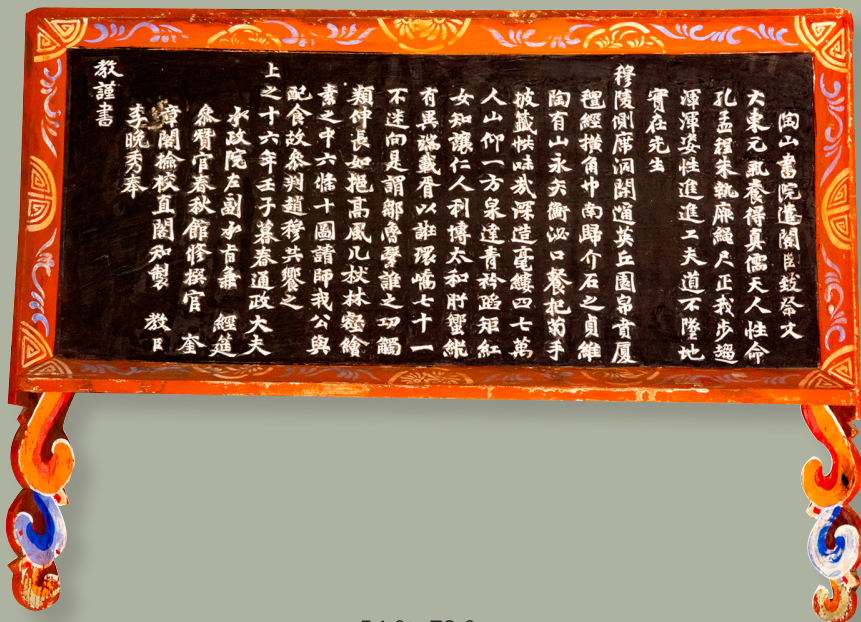 陶山書院遣閣臣致祭文
大東元氣養得真儒天人性命
孔孟程朱執廉繩尺正我步趨
渾渾姿性進進工夫道不墜地
實在先生
穆陵側席洞開通英丘園帛賁厦
氊經橫角巾南歸介石之貞維
陶有山永矢衡泌口餐杞菊手
披籤帙味哉深造毫縷四七萬
人山仰一方泉達青衿蹈矩紅
女知讓仁人利博太和肸蠁
有異端載胥以誑環嶠七十一
不迷向是謂鄒魯繄誰之功觸
類伸長如挹高風几杖林壑繪
素之中六條十圖請師我公與
配食故參判趙穆共饗之
上之十六年壬子暮春通政大夫
承政院左副承旨兼 經筵
參贊官春秋館修撰官 奎
章閣檢校直閣知製 教臣
李晩秀奉
教謹書